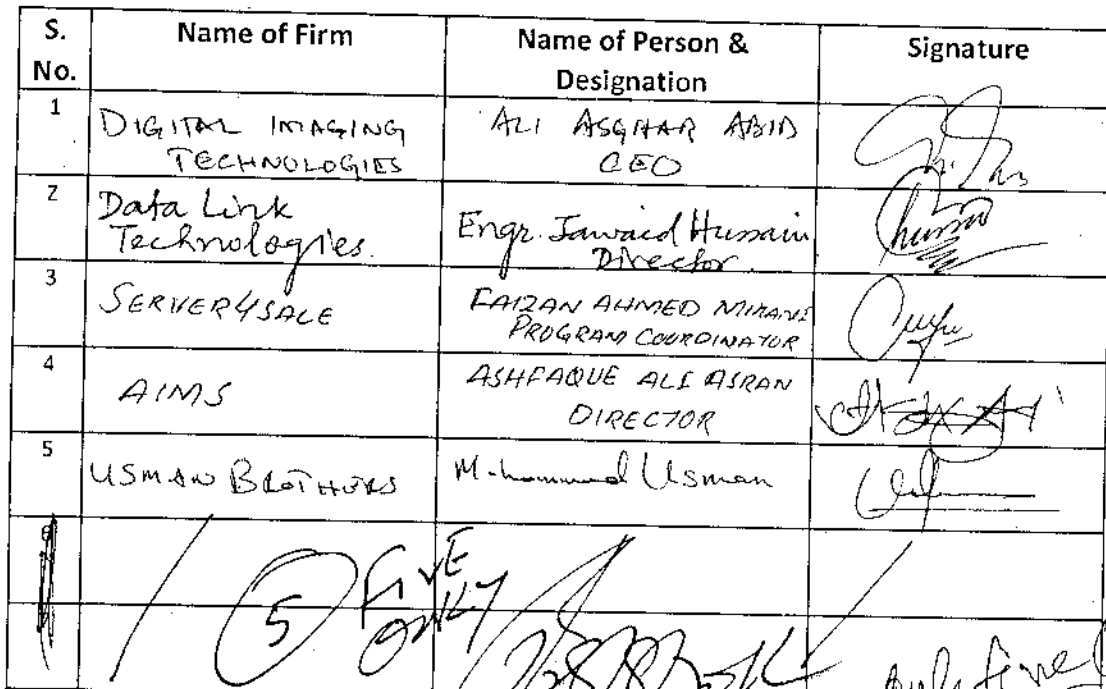 S. No.
Name of Firm
Name of Person &
Designation
Signature
1
DIGITAL IMAGING
TECHNOLOGIES
ALI ASGHAR ABID
CEO
2
Data Link
Technologies.
Engr. Jawaid Hussain
Director.
3
SERVER4SALE
FAIZAN AHMED MIRANI
PROGRAM COORDINATOR
4
AIMS
ASHFAQUE ALI ASRAN
DIRECTOR
5
USMAN BROTHERS
Muhammad Usman
6
5
FIVE
ONLY